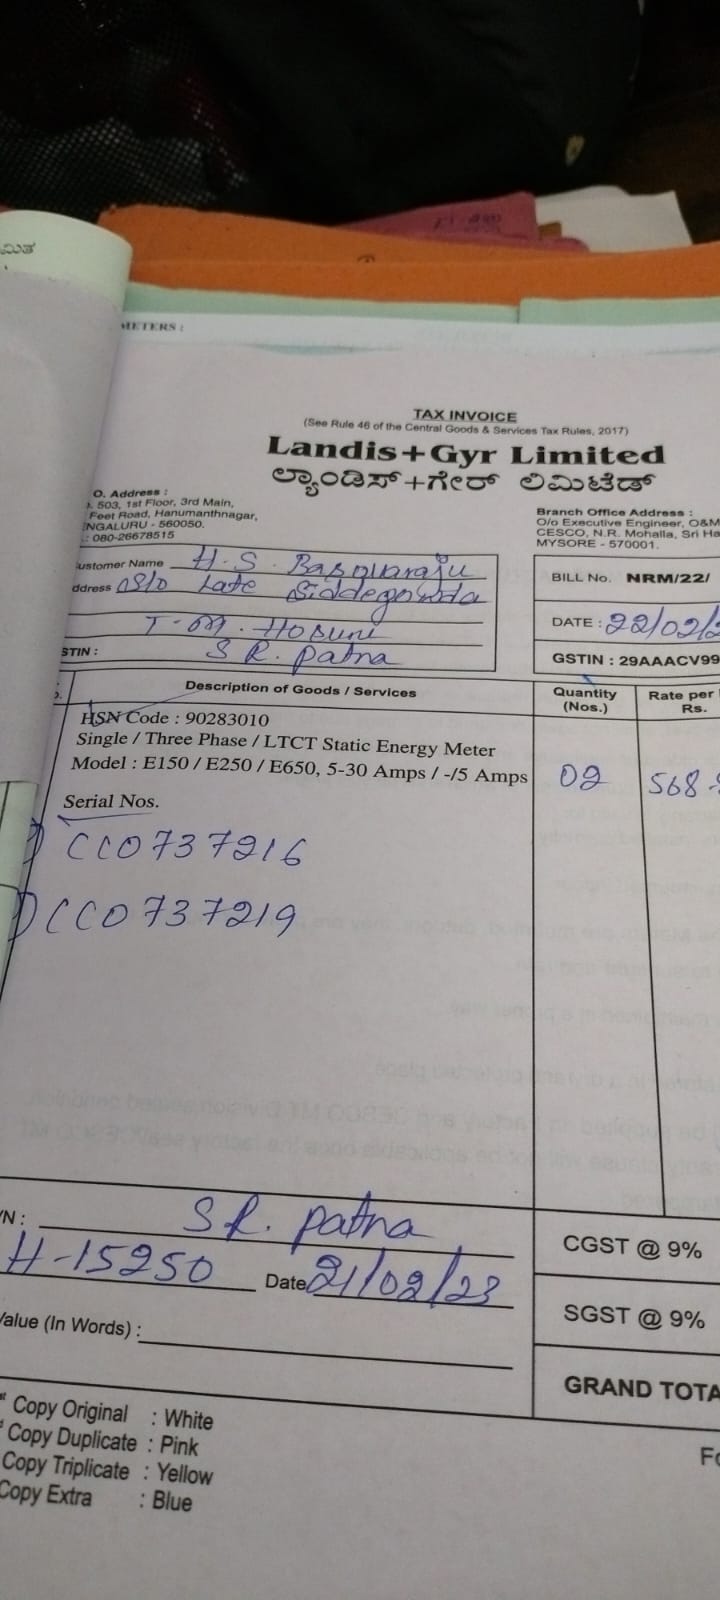 ಮಿತ
METERS :
TAX INVOICE
(See Rule 46 of the Central Goods & Services Tax Rules, 2017)
Landis+Gyr Limited
ಲ್ಯಾಂಡಿಸ್+ಗೇರ್ ಲಿಮಿಟೆಡ್
O. Address :
503, 1st Floor, 3rd Main,
Feet Road, Hanumanthnagar,
NGALURU - 560050.
: 080-26678515
Branch Office Address :
O/o Executive Engineer, O&M
CESCO, N.R. Mohalla, Sri Ha
MYSORE - 570001.
ustomer Name H.S. Basavaraju
ddress S/o Late Siddegowda
T.M. Hosuru
STIN : S R. Patna
BILL No. NRM/22/
DATE : 22/02/2
GSTIN : 29AAACV99
Description of Goods / Services
Quantity
(Nos.)
Rate per
Rs.
HSN Code : 90283010
Single / Three Phase / LTCT Static Energy Meter
Model : E150 / E250 / E650, 5-30 Amps / -/5 Amps
02
568
Serial Nos.
CC0737216
CC0737219
/N : S R. Patna
H-15250 Date 21/02/23
Value (In Words) :
CGST @ 9%
SGST @ 9%
GRAND TOTA
Copy Original : White
Copy Duplicate : Pink
Copy Triplicate : Yellow
Copy Extra : Blue
Fo